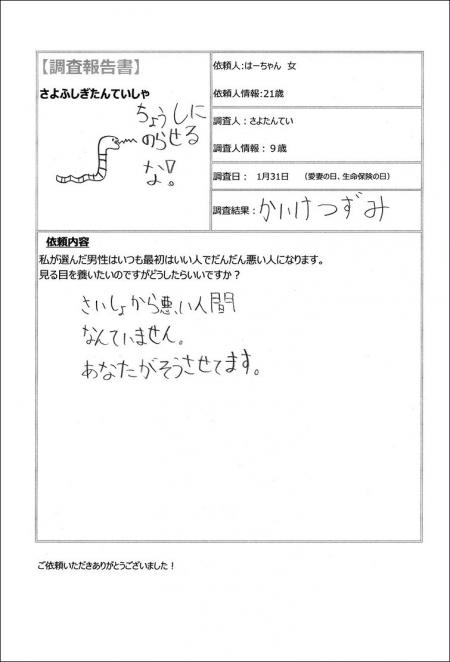 【調査報告書】
さよふしぎたんていしゃ
ちょうしに
のらせる
な!。
依頼人:はーちゃん 女
依頼人情報:21歳
調査人:さよたんてい
調査人情報:9歳
調査日: 1月31日 (愛妻の日、生命保険の日)
調査結果:かいけつずみ
依頼内容
私が選んだ男性はいつも最初はいい人でだんだん悪い人になります。
見る目を養いたいのですがどうしたらいいですか?
さいしょから悪い人間
なんていません。
あなたがそうさせてます。
ご依頼いただきありがとうございました!